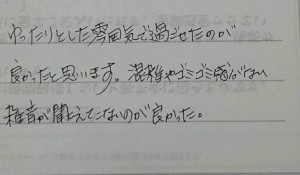 ゆったりとした雰囲気で過ごせたのが
良かったと思います。混雑やゴミゴミ感がない
雑音が聞えてこないのが良かった。